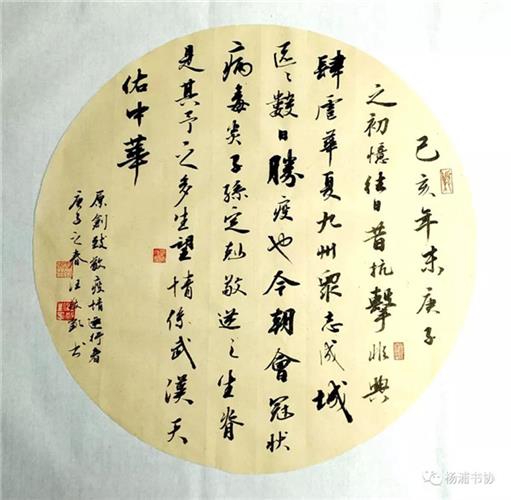 己亥年末庚子
之初憶往日昔抗擊非典
肆虐華夏九州眾志成城
數日勝疫也今朝會冠狀
病毒炎子孫定剋敬逆之生脊
是其予之多生望情係武漢天
佑中華
原創致敬疫情逆行者
庚子之春汪書
杨浦书协